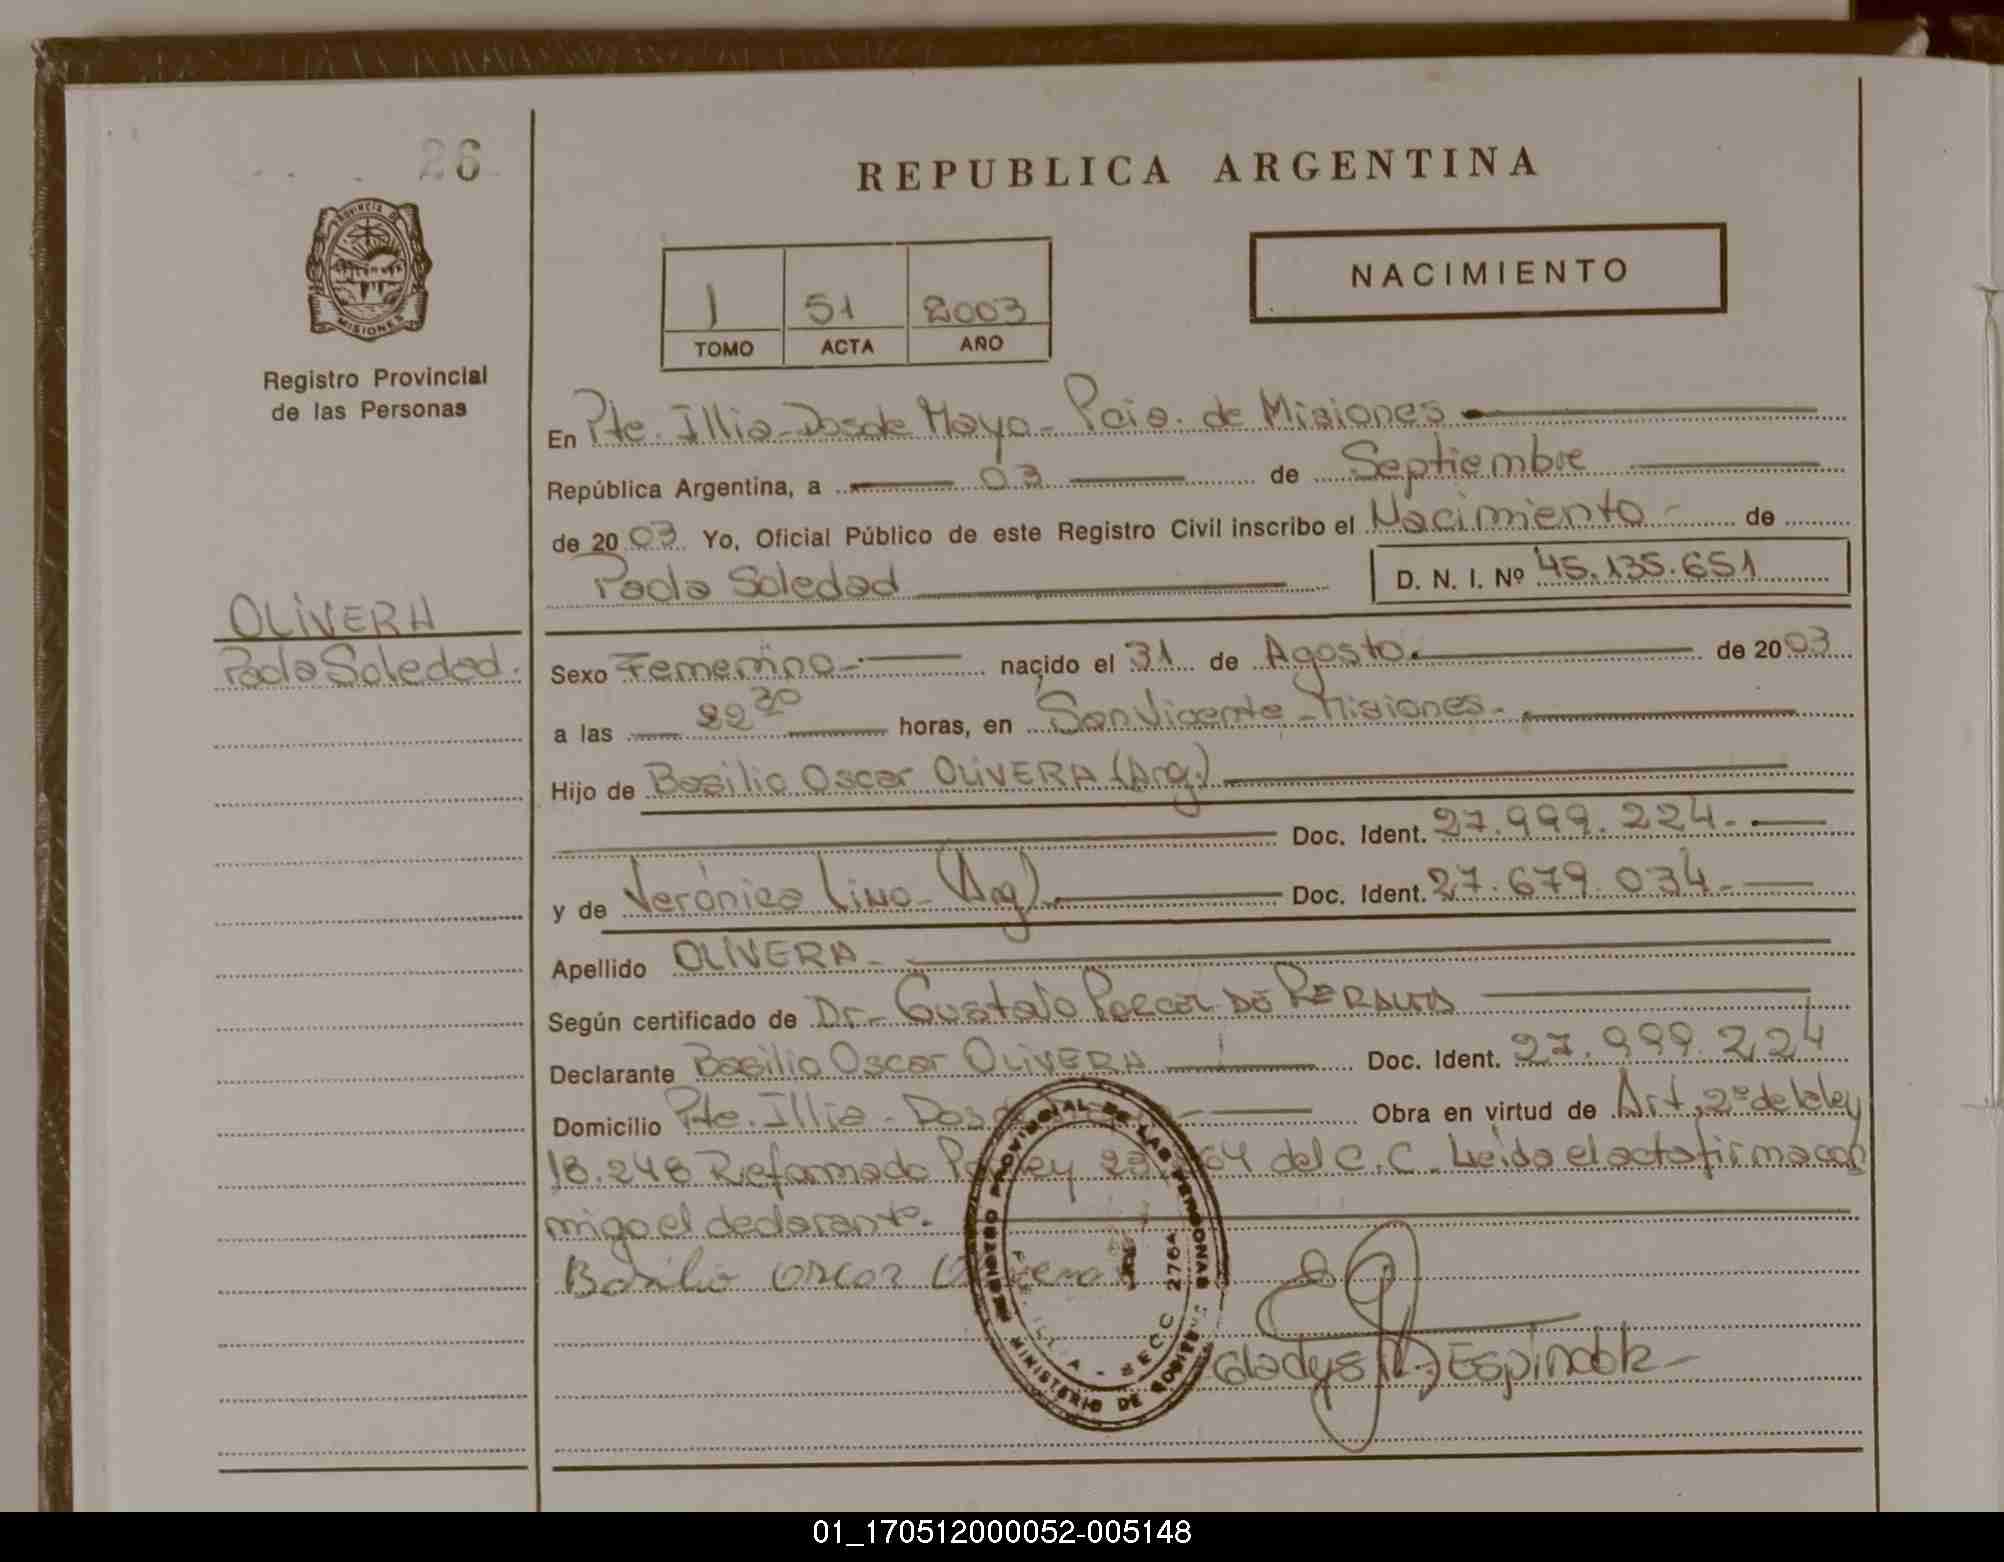 26
REPUBLICA ARGENTINA
PROVINCIA DE
MISIONES
Registro Provincial
de las Personas
NACIMIENTO
1 51 2003
TOMO ACTA AÑO
En Pte. Illia - Dos de Mayo - Pcia. de Misiones
República Argentina, a 03 de Septiembre
de 2003 Yo, Oficial Público de este Registro Civil inscribo el Nacimiento - de
Paola Soledad D. N. I. Nº 45.135.651
OLIVERA
Paola Soledad.
Sexo Femenino - nacido el 31 de Agosto de 2003
a las 22 30 horas, en San Vicente - Misiones -
Hijo de Basilio Oscar OLIVERA (Arg.)
Doc. Ident. 27.999.224 -
y de Verónica Lino - (Arg) Doc. Ident. 27.679.034 -
Apellido OLIVERA -
Según certificado de Dr - Gustavo
Declarante Basilio Oscar OLIVERA Doc. Ident. 27.999.224
Domicilio Pte. Illia - Dos Obra en virtud de Art. 2º de la ley
18.248 Reformado del C.C. Leída el acta firma con
migo el declarante.
Basilio Oscar
Gladys Espindola
REGISTRO PROVINCIAL DE LAS PERSONAS
MINISTERIO DE GOBIERNO
SECC 276A
01_170512000052-005148